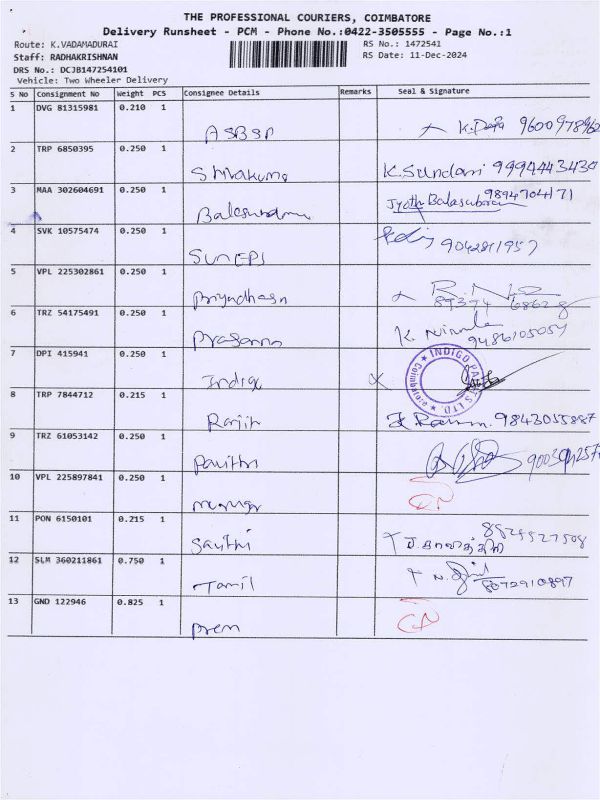 THE PROFESSIONAL COURIERS, COIMBATORE
Delivery Runsheet - PCM - Phone No.:0422-3505555 - Page No.:1
Route: K.VADAMADURAI
RS No.: 1472541
Staff: RADHAKRISHNAN
RS Date: 11-Dec-2024
DRS No.: DCJB147254101
Vehicle: Two Wheeler Delivery
S No Consignment No Weight PCS Consignee Details Remarks Seal & Signature
1 DVG 81315981 0.210 1
ASBSP
2 TRP 6850395 0.250 1
Shivakumar K.Sundari 9994443430
3 MAA 302604691 0.250 1
Jyothi Balasubram 9894704171
4 SVK 10575474 0.250 1
9042811957
5 VPL 225302861 0.250 1
Priyadhasn
6 TRZ 54175491 0.250 1
Prasanna K. Nirmala 9486105057
7 DPI 415941 0.250 1
Indigo INDIGO PAINTS LTD. Coimbatore
8 TRP 7844712 0.215 1
Ranjit 9843055887
9 TRZ 61053142 0.250 1
Pavithra
10 VPL 225897841 0.250 1
CN
11 PON 6150101 0.215 1
Sauthi
12 SLM 360211861 0.750 1
Tamil 8072910897
13 GND 122946 0.825 1
Prem CN